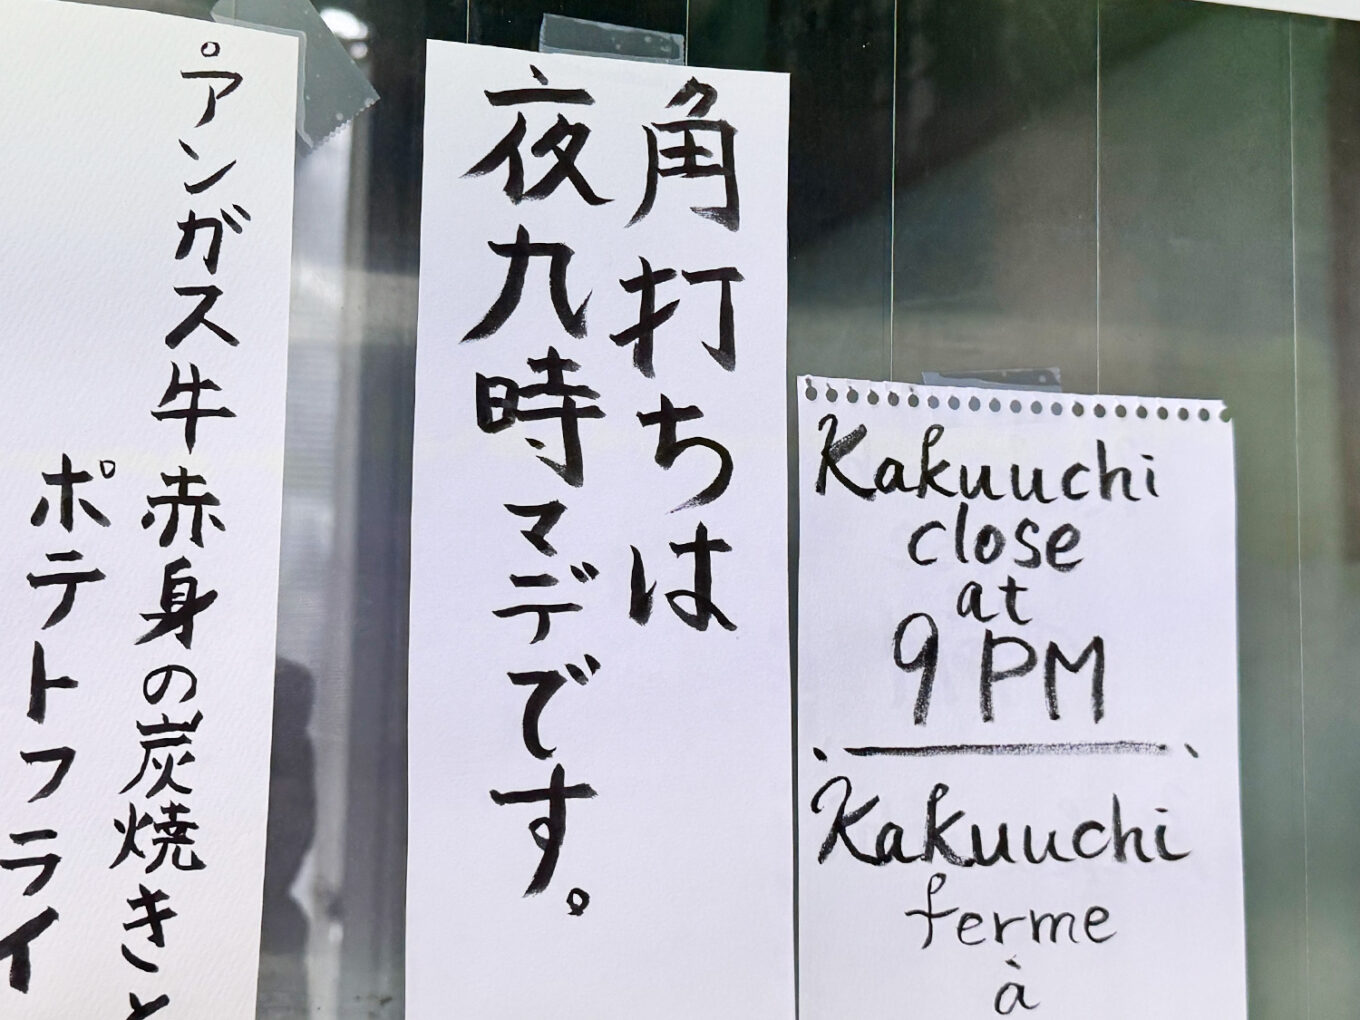 角打ちは
夜九時マデです。
。アンガス牛赤身の炭焼きと
ポテトフライ
Kakuuchi
close
at
9 PM
Kakuuchi
ferme
à